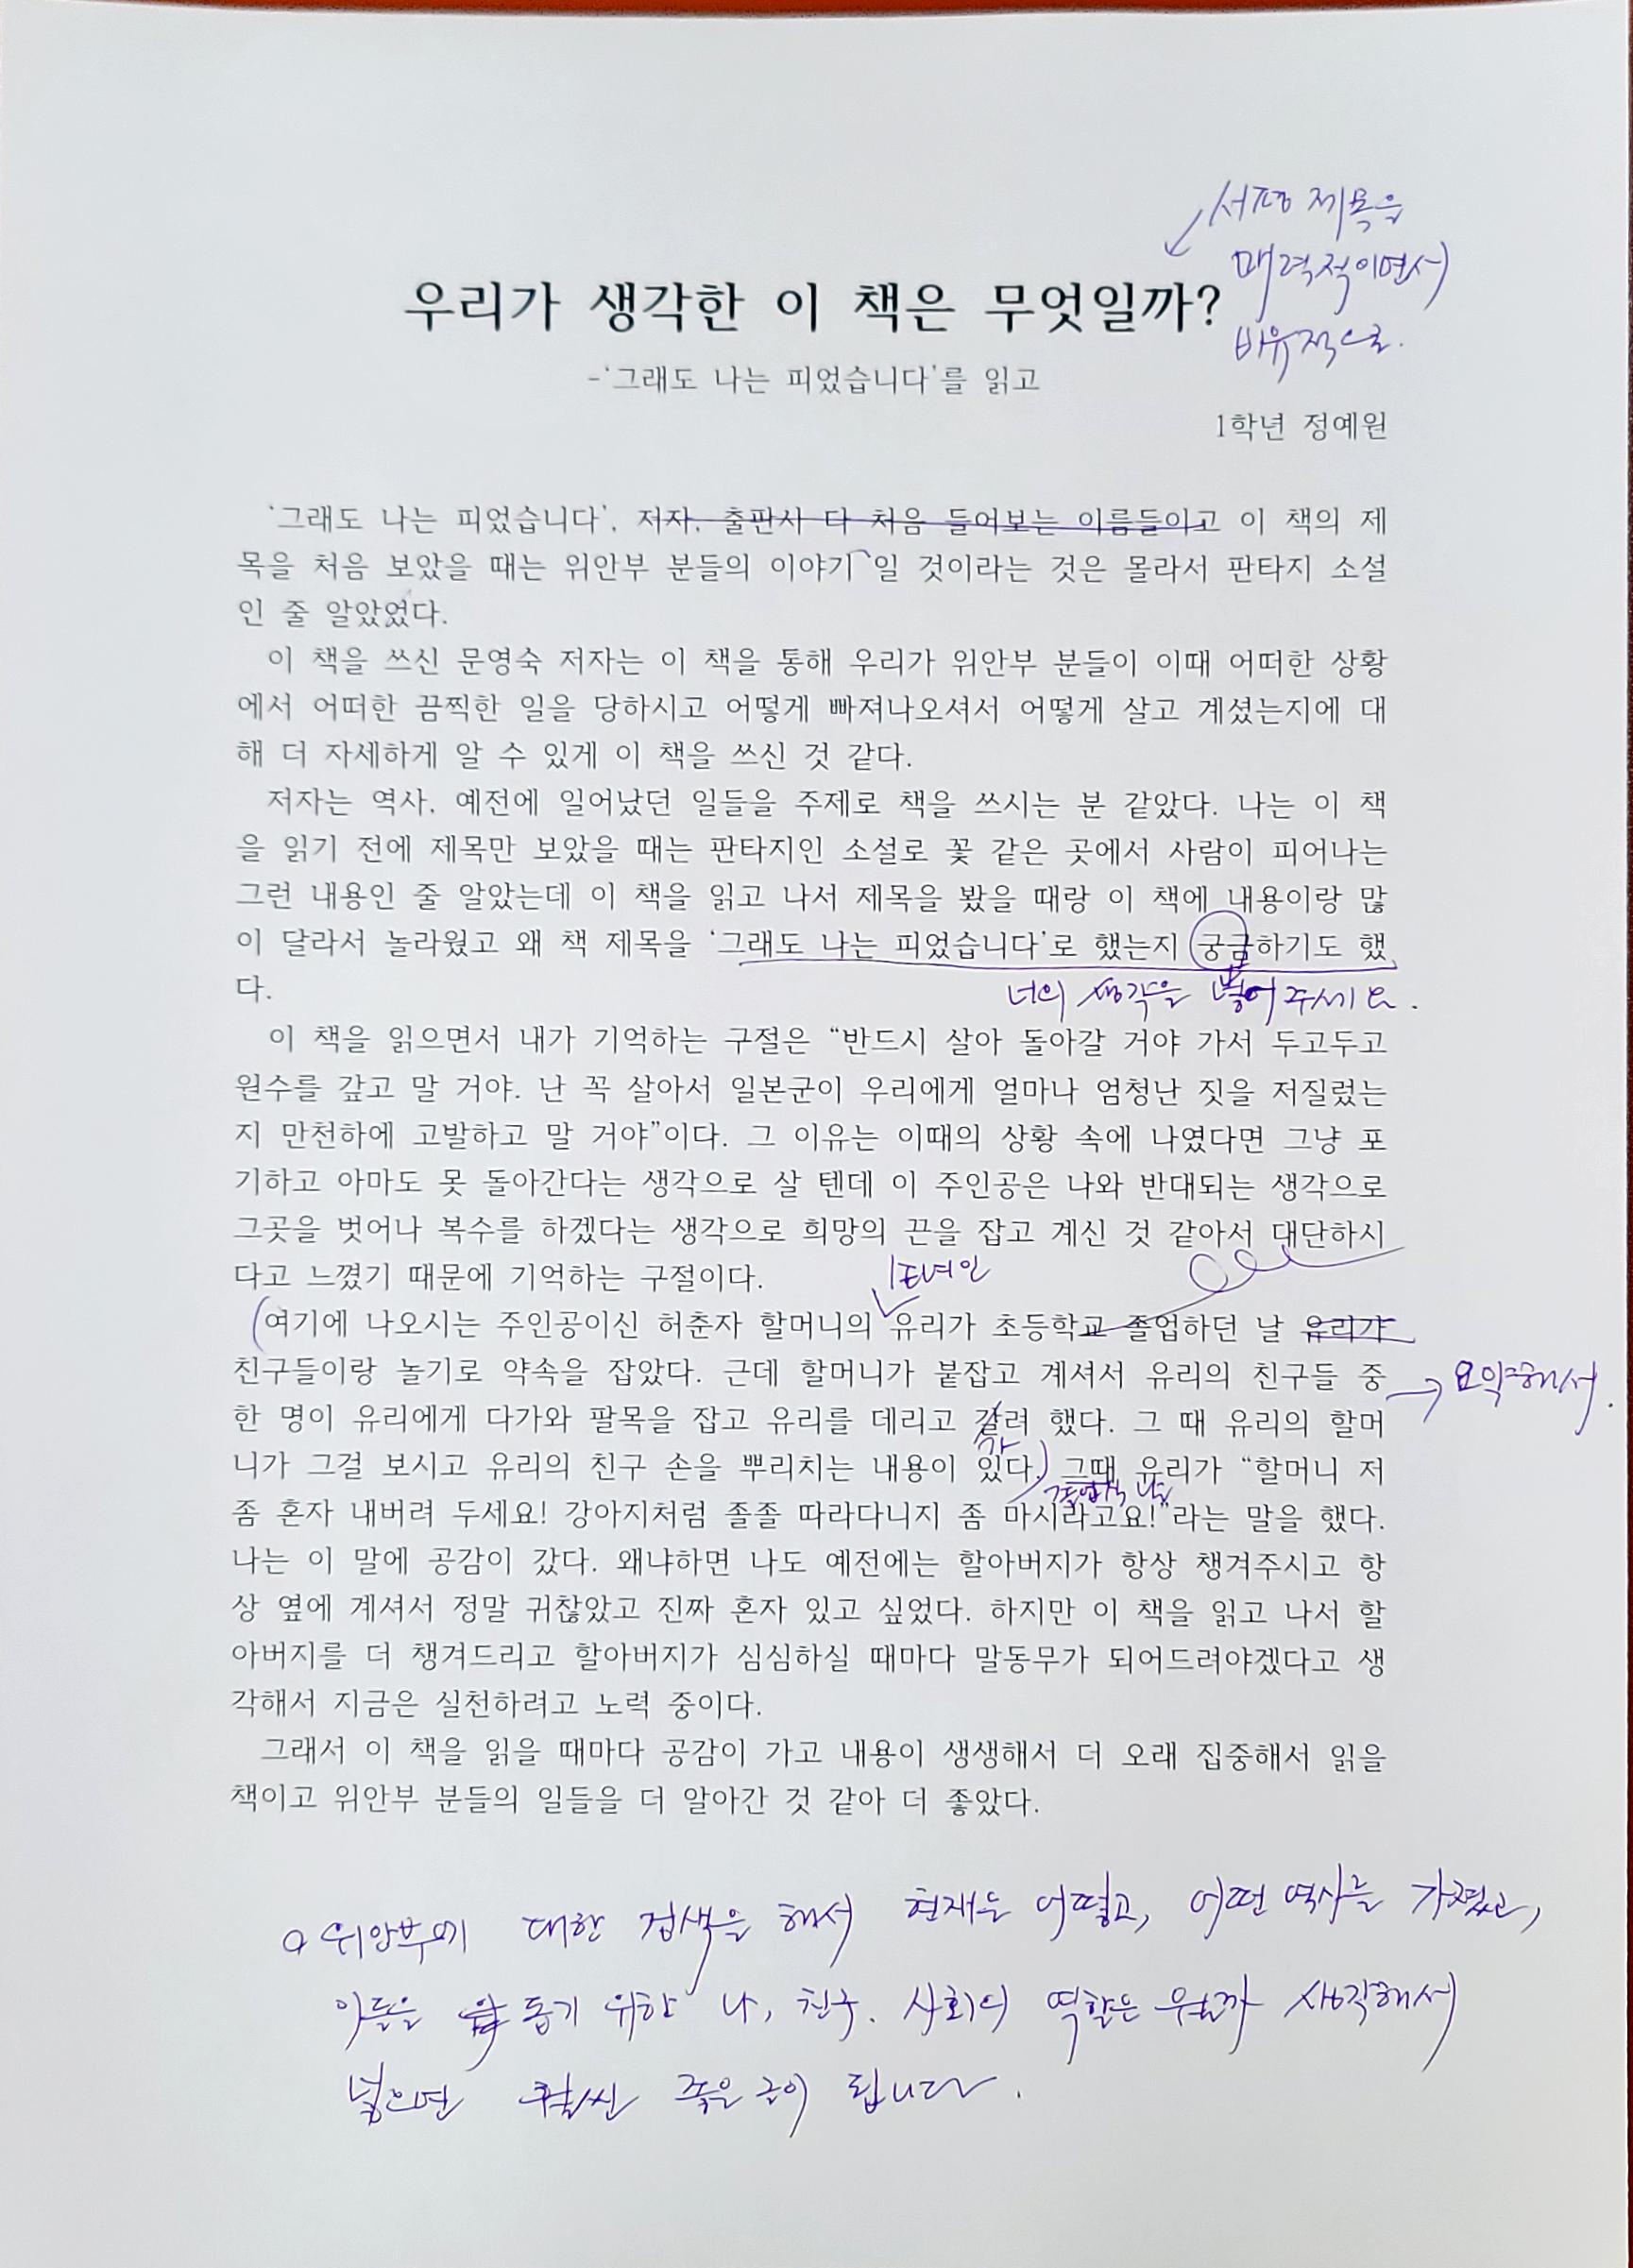 서평 제목을
매력적이면서
비유적으로.
우리가 생각한 이 책은 무엇일까?
-'그래도 나는 피었습니다'를 읽고
1학년 정예원
'그래도 나는 피었습니다', 저자, 출판사 다 처음 들어보는 이름들이고 이 책의 제
목을 처음 보았을 때는 위안부 분들의 이야기 일 것이라는 것은 몰라서 판타지 소설
인 줄 알았었다.
이 책을 쓰신 문영숙 저자는 이 책을 통해 우리가 위안부 분들이 이때 어떠한 상황
에서 어떠한 끔찍한 일을 당하시고 어떻게 빠져나오셔서 어떻게 살고 계셨는지에 대
해 더 자세하게 알 수 있게 이 책을 쓰신 것 같다.
저자는 역사, 예전에 일어났던 일들을 주제로 책을 쓰시는 분 같았다. 나는 이 책
을 읽기 전에 제목만 보았을 때는 판타지인 소설로 꽃 같은 곳에서 사람이 피어나는
그런 내용인 줄 알았는데 이 책을 읽고 나서 제목을 봤을 때랑 이 책에 내용이랑 많
이 달라서 놀라웠고 왜 책 제목을 '그래도 나는 피었습니다'로 했는지 궁금하기도 했
다.
너의 생각을 넣어 주세요.
이 책을 읽으면서 내가 기억하는 구절은 “반드시 살아 돌아갈 거야 가서 두고두고
원수를 갚고 말 거야. 난 꼭 살아서 일본군이 우리에게 얼마나 엄청난 짓을 저질렀는
지 만천하에 고발하고 말 거야”이다. 그 이유는 이때의 상황 속에 나였다면 그냥 포
기하고 아마도 못 돌아간다는 생각으로 살 텐데 이 주인공은 나와 반대되는 생각으로
그곳을 벗어나 복수를 하겠다는 생각으로 희망의 끈을 잡고 계신 것 같아서 대단하시
다고 느꼈기 때문에 기억하는 구절이다.
여기에 나오시는 주인공이신 허춘자 할머니의 유리가 초등학교 졸업하던 날 유리가
친구들이랑 놀기로 약속을 잡았다. 근데 할머니가 붙잡고 계셔서 유리의 친구들 중
요약해서.
한 명이 유리에게 다가와 팔목을 잡고 유리를 데리고 갈려 했다. 그 때 유리의 할머
가
니가 그걸 보시고 유리의 친구 손을 뿌리치는 내용이 있다. 그때 유리가 “할머니 저
졸업식 날
좀 혼자 내버려 두세요! 강아지처럼 졸졸 따라다니지 좀 마시라고요!”라는 말을 했다.
나는 이 말에 공감이 갔다. 왜냐하면 나도 예전에는 할아버지가 항상 챙겨주시고 항
상 옆에 계셔서 정말 귀찮았고 진짜 혼자 있고 싶었다. 하지만 이 책을 읽고 나서 할
아버지를 더 챙겨드리고 할아버지가 심심하실 때마다 말동무가 되어드려야겠다고 생
각해서 지금은 실천하려고 노력 중이다.
그래서 이 책을 읽을 때마다 공감이 가고 내용이 생생해서 더 오래 집중해서 읽을
책이고 위안부 분들의 일들을 더 알아간 것 같아 더 좋았다.
위안부에 대한 검색을 해서 현재는 어떻고, 어떤 역사를 가졌고,
이들을 돕기 위한 나, 친구, 사회의 역할은 뭘까 생각해서
넣으면 훨씬 좋은 글이 됩니다.